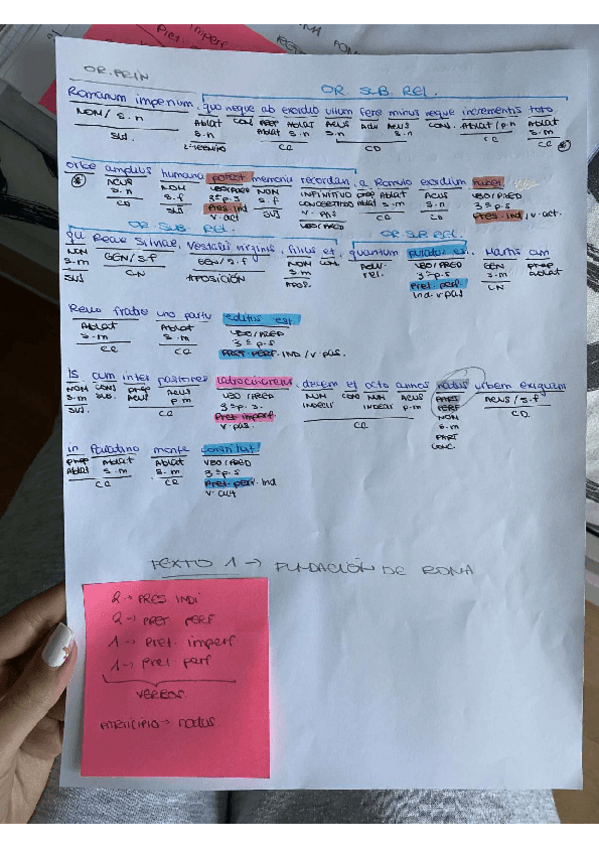 OR. PRIN
OR. SUB. REL.
Romanum imperium, quo neque ab exordio ullum fere minus neque incrementis toto
NOM/ s.n Ablat CONJ PREP Ablat Acus Adv Acus CONJ. Ablat/p.n Ablat
s.n Ablat s.n s.n s.n s.m
SUJ. CC CD CC
orbe amplius humana potest memoria recordari, a Romulo exordium habet
ACUS NOM VBO/PRED NOM INFINITIVO prep Ablat ACUS VBO/PRED
s.n s.f 3ªp.s s.f CONCERTADO Ablat s.m s.n 3ªp.s
CD SUJ Pres. ind SUJ V. PAS CC CD Pres. ind/v.act.
v. act VBO/PRED
OR. SUB. REL. OR SUB REL.
qui Reae Silviae, Vestalis virginis, filius et, quantum putatus est, Martis cum
NOM GEN/s.f GEN/s.f NOM CONJ Adv. VBO/PRED GEN prep
s.m CN APOSICIÓN s.m rel. 3ªp.s s.m ablat
SUJ APOS. Pret. perf. CN
Ind. v. pas
Remo fratre uno partu editus est
Ablat Ablat VBO/PRED
s.m s.m 3ªp.s
CC CC PRET. PERF. IND/v. pas.
Is cum inter pastores latrocinaretur, decem et octo annos natus urbem exiguam
NOM CONJ prep Acus VBO/PRED NUM CONJ NUM ACUS PART ACUS/s.f
s.m SUB. Acus p.m 3ªp.s. INDECL INDECL p.m PERF CD
SUJ. CC Pret imperf. CC NOM
v. pas. s.m
PART
CONC.
in Palatino monte constituit
prep Ablat Ablat VBO/PRED
Ablat s.m s.m 3ªp.s
CC CC Pret. perf. Ind
v. act
TEXTO 1 → FUNDACIÓN DE ROMA
2 → PRES INDI
2 → PRET PERF
1 → Pret. imperf
1 → Pret perf
VERBOS.
PARTICIPIO → natus.